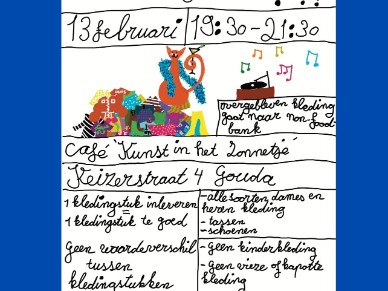 13 februari 19:30-21:30
overgebleven kleding
gaat naar non-food
bank
Café 'Kunst in het Zonnetje'
Keizerstraat 4 Gouda
1 kledingstuk inleveren
=
1 kledingstuk te goed
geen waardeverschil
tussen
kledingstukken
-alle soorten dames en
heren kleding
-tassen
-schoenen
-geen kinderkleding
-geen vieze of kapotte
kleding